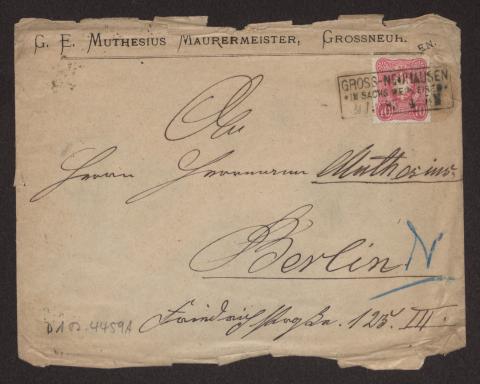 G. E. Muthesius Maurermeister, Grossneuh.
EN.
GROSS-NEUHAUSEN
* IN SACHS WEIM EISEN *
10 10
An
Herrn Herrmann Muthesius.
Berlin N
Friedrichstraße. 125. III.
D 102-4459A